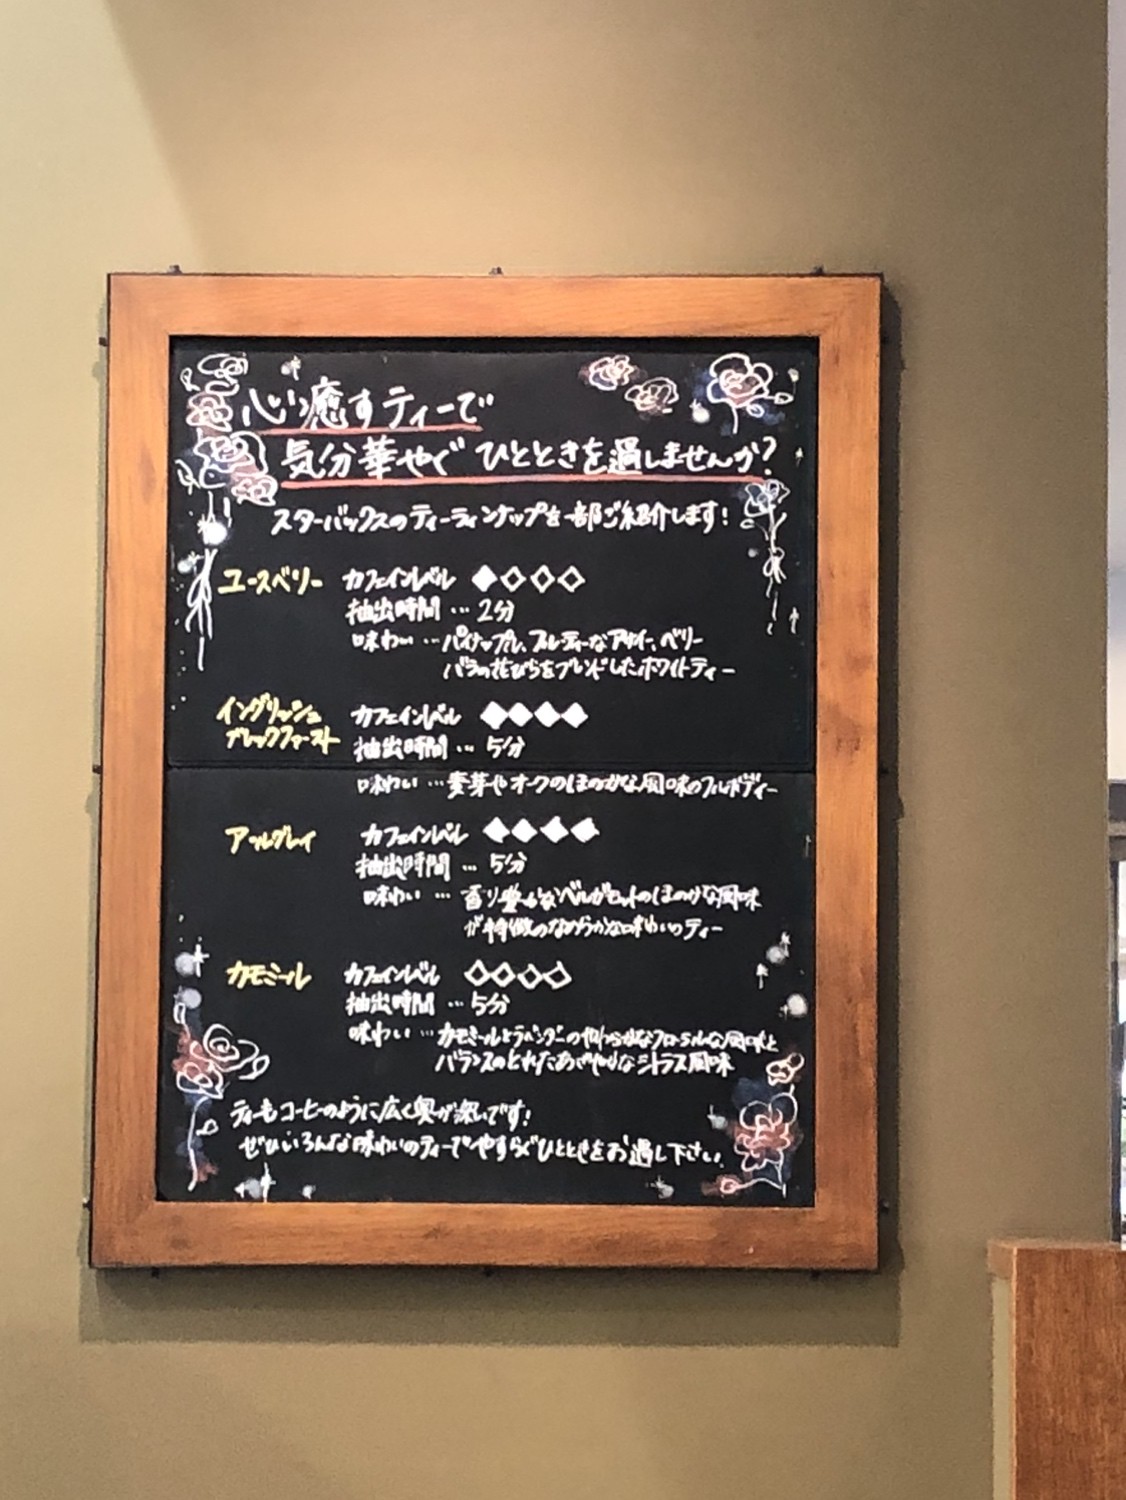 心癒すティーで
気分華やぐひとときを過しませんか?
スターバックスのティーラインナップを一部ご紹介します!
ユースベリー カフェインレベル ◆◇◇◇
抽出時間 … 2分
味わい … パイナップル、フルーティーなアサイー、ベリー
バラの花びらをブレンドしたホワイトティー
イングリッシュ カフェインレベル ◆◆◆◆
ブレックファースト 抽出時間 … 5分
味わい … 麦芽やオークのほのかな風味のフルボディー
アールグレイ カフェインレベル ◆◆◆◆
抽出時間 … 5分
味わい … 香り豊かなベルガモットのほのかな風味
が特徴のなめらかな味わいのティー
カモミール カフェインレベル ◇◇◇◇
抽出時間 … 5分
味わい … カモミールとラベンダーのやわらかなフローラルな風味と
バランスのとれたあざやかなシトラス風味
ティーもコーヒーのように広く奥が深いです!
ぜひいろんな味わいのティーでやすらぐひとときをお過し下さい。